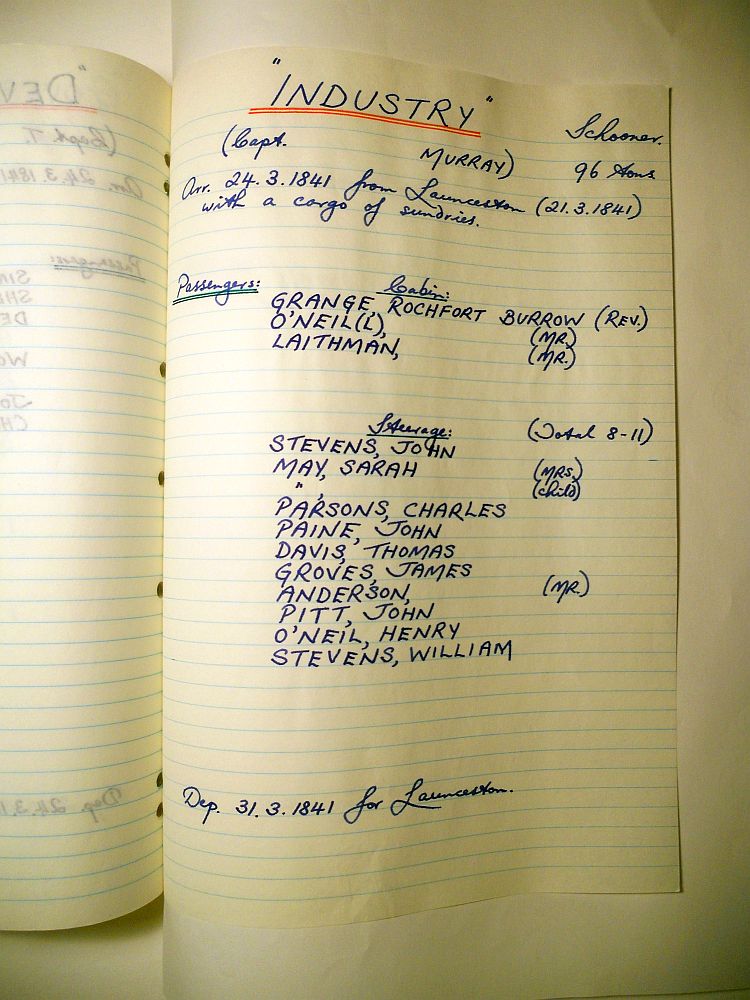 "INDUSTRY"
Schooner.
(Capt. MURRAY) 96 tons
Arr. 24.3.1841 from Launceston (21.3.1841)
with a cargo of sundries.
Passengers: Cabin:
GRANGE, ROCHFORT BURROW (REV.)
O'NEIL(L), (MR.)
LAITHMAN, (MR.)
Steerage: (Total 8-11)
STEVENS, JOHN
MAY, SARAH (MRS.)
" , (child)
PARSONS, CHARLES
PAINE, JOHN
DAVIS, THOMAS
GROVES, JAMES
ANDERSON, (MR.)
PITT, JOHN
O'NEIL, HENRY
STEVENS, WILLIAM
Dep. 31.3.1841 for Launceston.